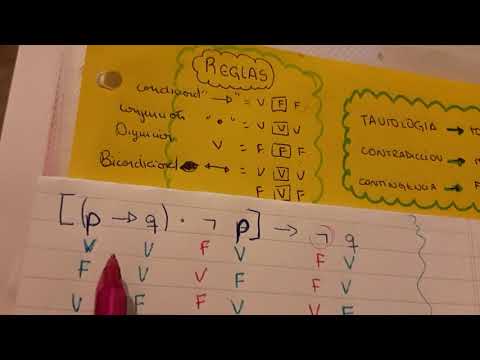 REGLAS
condicional "→" = V F F
conjunción "•" = V V V
Disyunción V = F F F
Bicondicional ↔ = V V V
F V F
TAUTOLOGÍA →
CONTRADICCIÓN →
CONTINGENCIA → F
[(p → q) • ¬ p] → ¬ q
V V F V F V
F V V F F V
V F F V V F